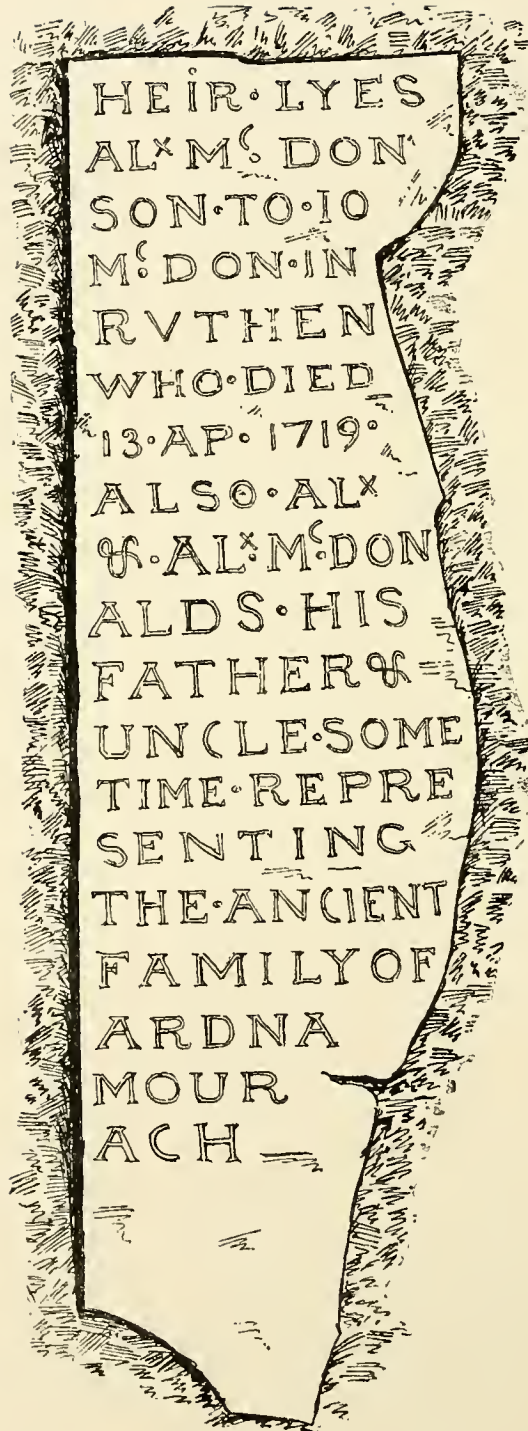 HEIR·LYES
ALˣ Mᶜ· DON·
SON·TO·IO
Mᶜ·DON·IN
RVTHEN
WHO·DIED
13·AP·1719·
ALSO·ALˣ
&·ALˣ·Mᶜ·DON
ALDS·HIS
FATHER &
UNCLE·SOME
TIME·REPRE
SENTING
THE·ANCIENT
FAMILY OF
ARDNA
MOUR
ACH